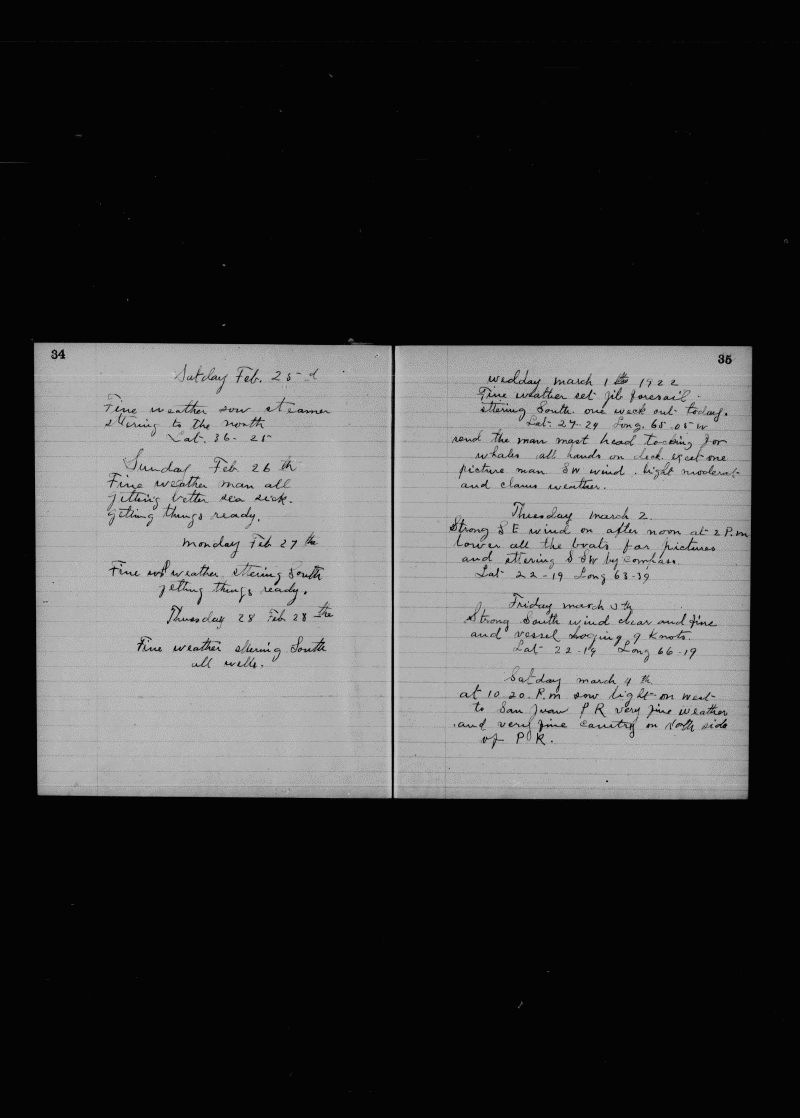 34
Satday Feb. 25 d
Fine weather sow steamer
sttering to the north
Lat. 36 - 25
Sunday Feb. 26 th
Fine weather man all
jetting better sea sick.
getting things ready.
monday Feb 27 the
Fine weather sttering South
jetting things ready.
Thuesday 28 Feb 28 the
Fine weather sttering South
all wells.
35
wedday march 1 th 1922
Fine weather set jib foresail.
sttering South. one week out today.
Lat 27-29 Long. 65.05 W
send the man mast head for
whales all hands on deck. excet one
picture man SW wind. light moderat
and claus weather.
Thuesday march 2.
Strong S E wind on after noon at 2 P.m
lower all the boats for pictures
and sttering S SW by compass.
Lat 22-19 Long 63-39
Friday march 3th
Strong South wind clear and fine
and vessel loging 9 Knots.
Lat 22-19 Long 66-19
Satday march 4 th
at 10 20. P.m sow light on west
to San Juan P R very fine weather
and very fine cauntry on North side
of P R.